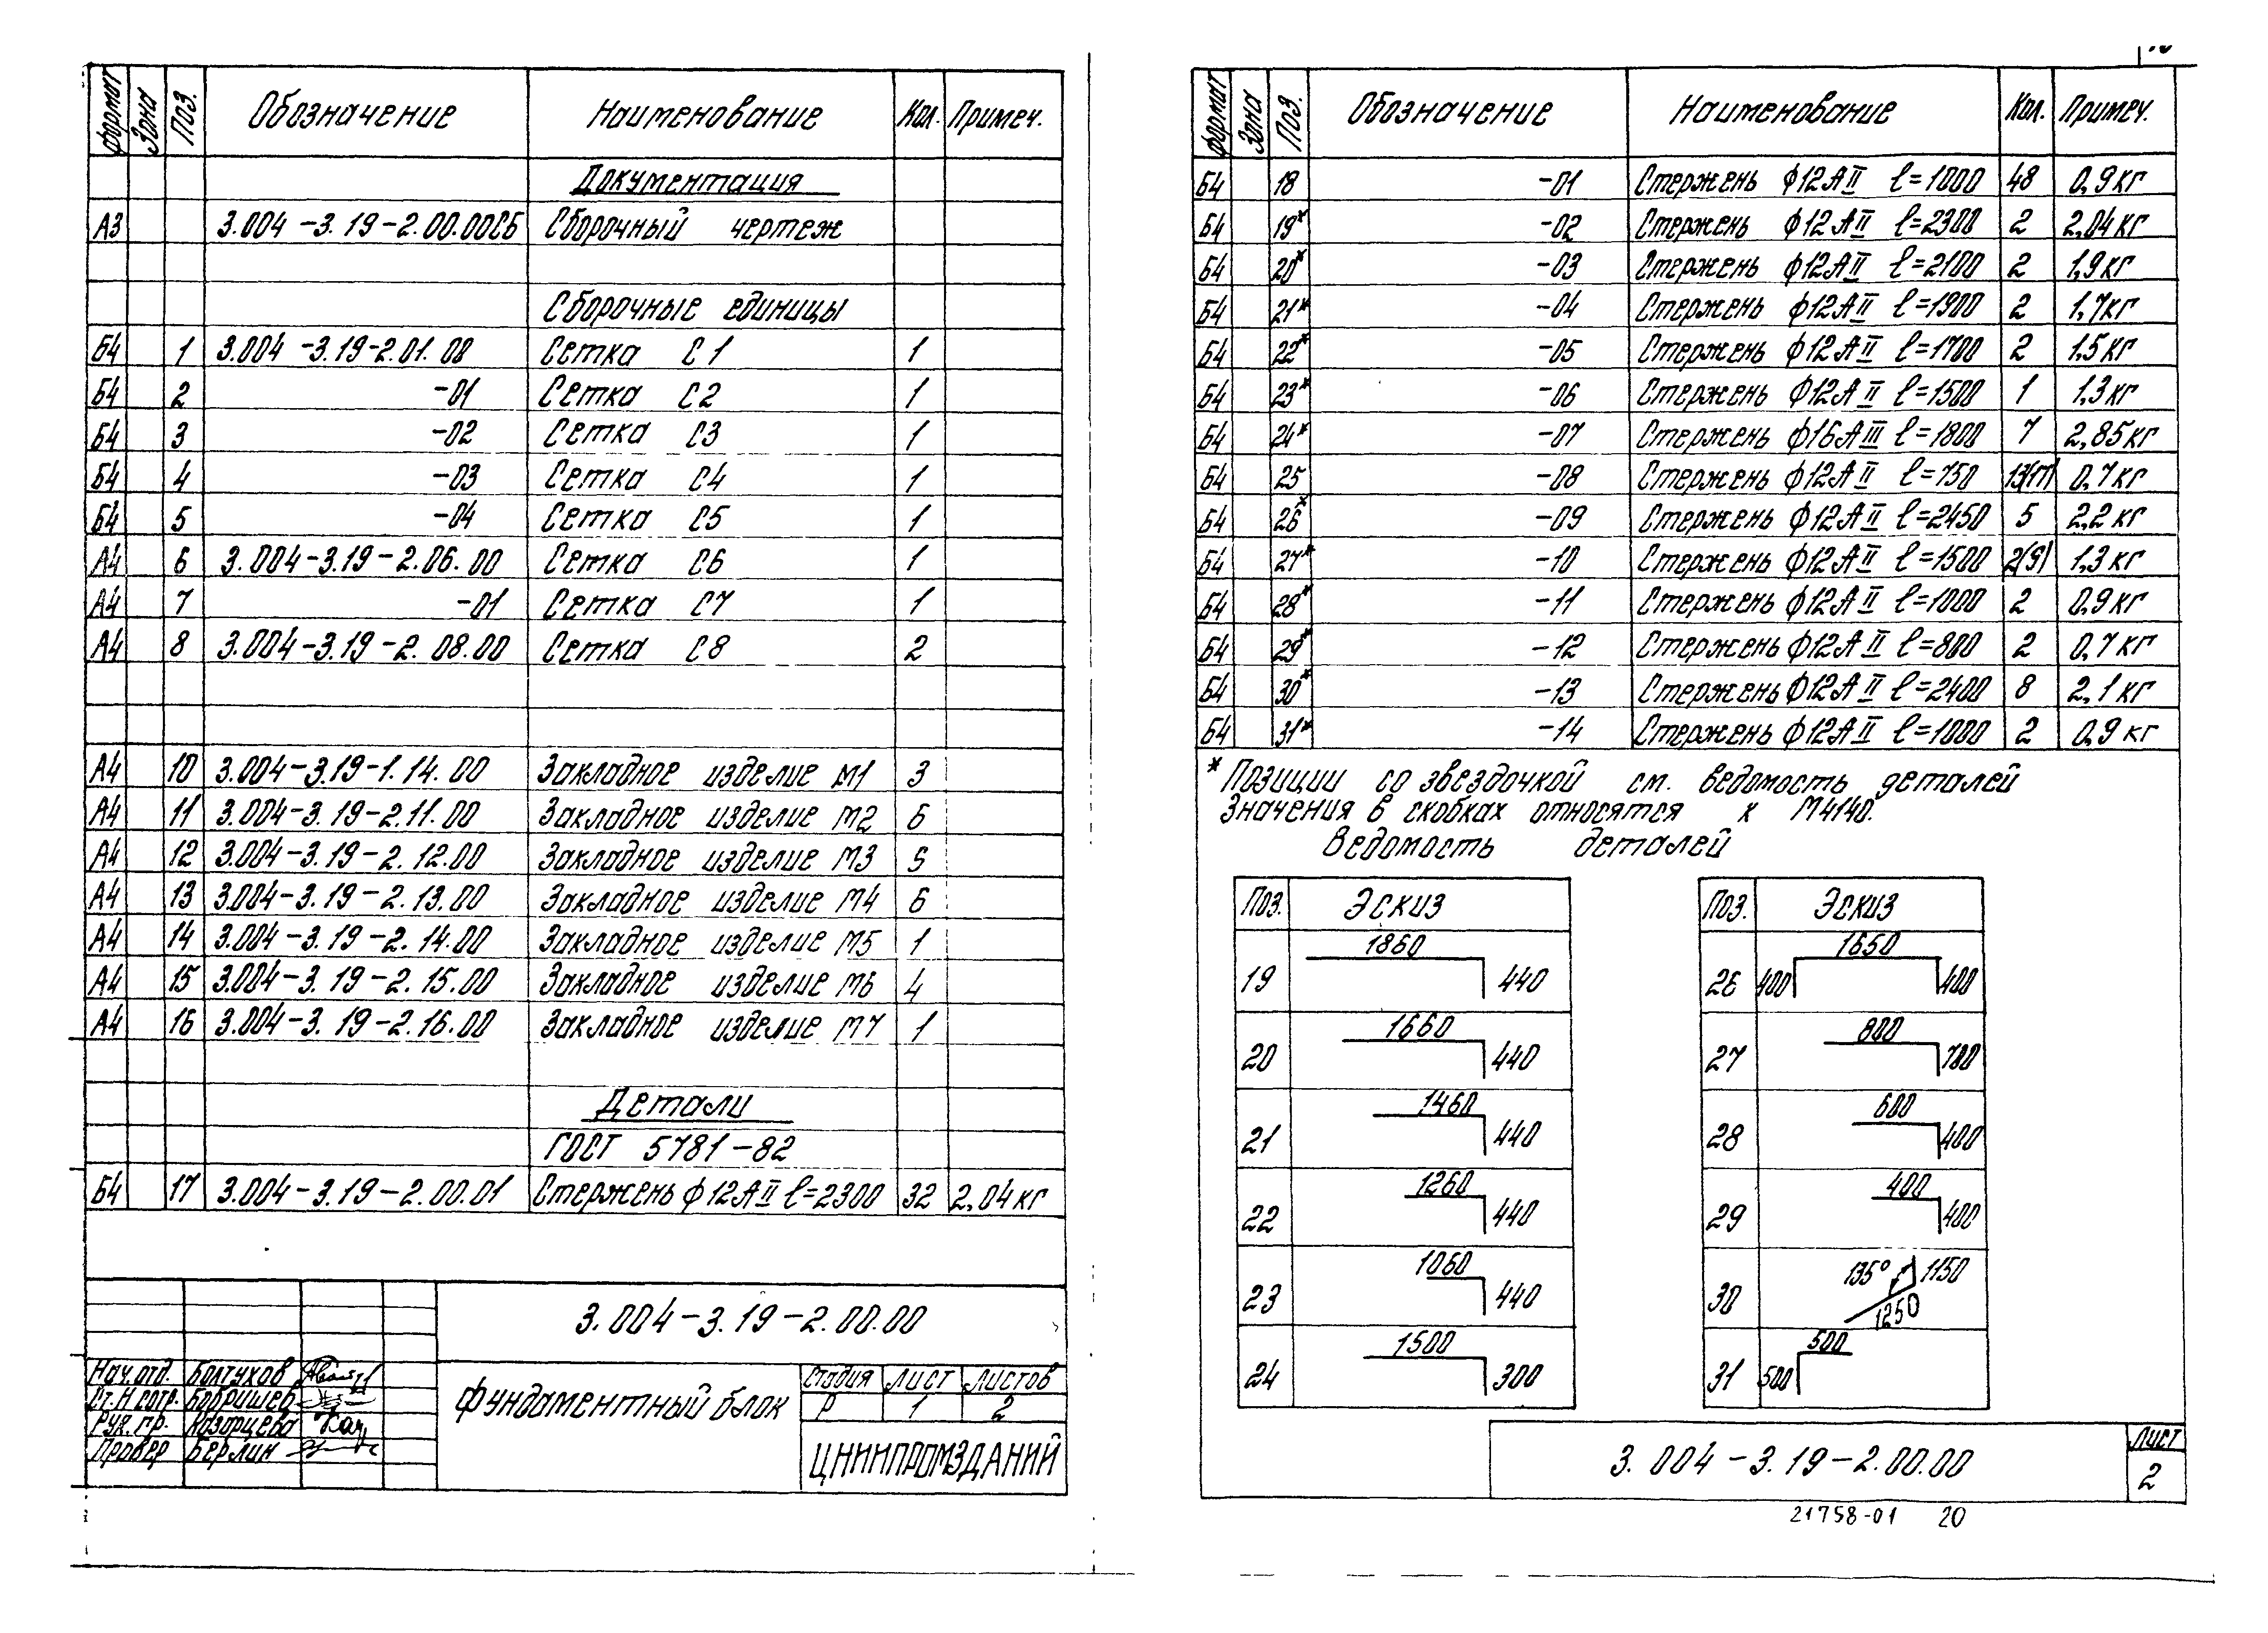 формат Зона Поз. Обозначение Наименование Кол. Примеч.
Документация
А3 3.004-3.19-2.00.00СБ Сборочный чертеж
Сборочные единицы
Б4 1 3.004-3.19-2.01.00 Сетка С1 1
Б4 2 -01 Сетка С2 1
Б4 3 -02 Сетка С3 1
Б4 4 -03 Сетка С4 1
Б4 5 -04 Сетка С5 1
А4 6 3.004-3.19-2.06.00 Сетка С6 1
А4 7 -01 Сетка С7 1
А4 8 3.004-3.19-2.08.00 Сетка С8 2
А4 10 3.004-3.19-1.14.00 Закладное изделие М1 3
А4 11 3.004-3.19-2.11.00 Закладное изделие М2 6
А4 12 3.004-3.19-2.12.00 Закладное изделие М3 5
А4 13 3.004-3.19-2.13.00 Закладное изделие М4 6
А4 14 3.004-3.19-2.14.00 Закладное изделие М5 1
А4 15 3.004-3.19-2.15.00 Закладное изделие М6 4
А4 16 3.004-3.19-2.16.00 Закладное изделие М7 1
Детали
ГОСТ 5781-82
Б4 17 3.004-3.19-2.00.01 Стержень ф12АII l=2300 32 2,04кг
3.004-3.19-2.00.00
Нач. отд. Болтухов
Бобришев
Рук. пр. Казарцева
Провер Берлин
фундаментный блок
Стадия Лист Листов
Р 1 2
ЦНИИПРОМЗДАНИЙ
формат Зона Поз. Обозначение Наименование Кол. Примеч.
Б4 18 -01 Стержень ф12АII l=1000 48 0,9кг
Б4 19* -02 Стержень ф12АII l=2300 2 2,04кг
Б4 20* -03 Стержень ф12АII l=2100 2 1,9кг
Б4 21* -04 Стержень ф12АII l=1900 2 1,7кг
Б4 22* -05 Стержень ф12АII l=1700 2 1,5кг
Б4 23* -06 Стержень ф12АII l=1500 1 1.3кг
Б4 24* -07 Стержень ф16АIII l=1800 7 2,85кг
Б4 25 -08 Стержень ф12АII l=750 0,7кг
Б4 26* -09 Стержень ф12АII l=2450 5 2,2кг
Б4 27* -10 Стержень ф12АII l=1500 2(9) 1,3кг
Б4 28* -11 Стержень ф12АII l=1000 2 0,9кг
Б4 29* -12 Стержень ф12АII l=800 2 0,7кг
Б4 30* -13 Стержень ф12АII l=2400 8 2,1кг
Б4 31* -14 Стержень ф12АII l=1000 2 0,9кг
* Позиции со звездочкой см. ведомость деталей
Значения в скобках относятся к М4140.
Ведомость деталей
Поз. Эскиз
19 1860 440
20 1660 440
21 1460 440
22 1260 440
23 1060 440
24 1500 300
Поз. Эскиз
26 400 1650 400
27 800 700
28 600 400
29 400 400
30 135° 1150 1250
31 500 500
3.004-3.19-2.00.00
Лист
2
21758-01 20